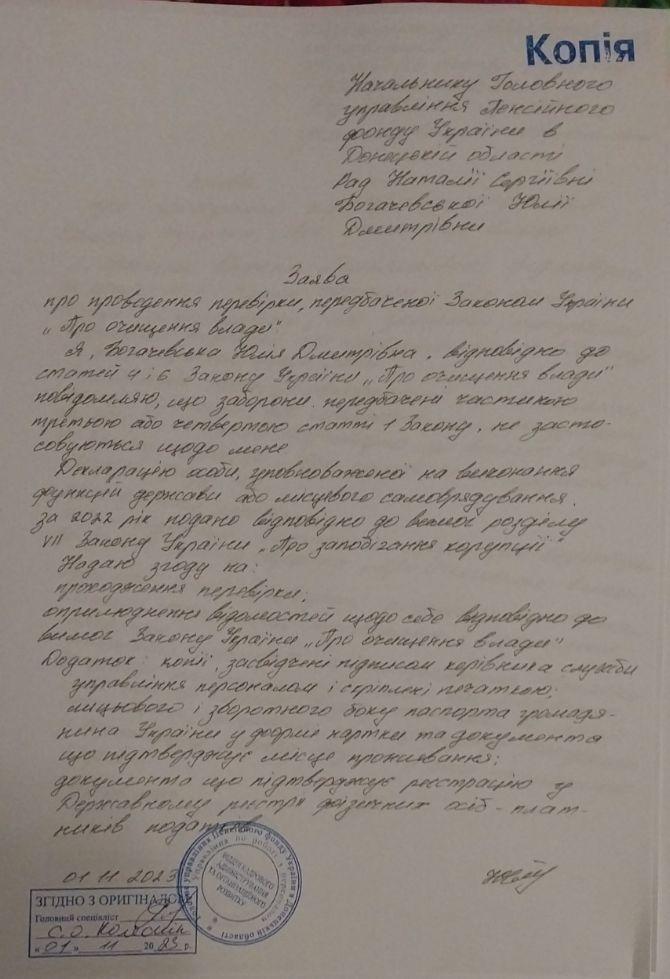 Копія
Начальнику Головного
управління Пенсійного
фонду України в
Донецькій області
Рад Наталії Сергіївні
Богачевської Юлії
Дмитрівни
Заява
про проведення перевірки, передбаченої Законом України
„Про очищення влади"
Я, Богачевська Юлія Дмитрівна, відповідно до
статей 4 і 6 Закону України „Про очищення влади"
повідомляю, що заборони, передбачені частиною
третьою або четвертою статті 1 Закону, не засто-
совуються щодо мене
Декларацію особи, уповноваженої на виконання
функцій держави або місцевого самоврядування,
за 2022 рік подано відповідно до вимог розділу
VII Закону України „Про запобігання корупції"
Надаю згоду на:
проходження перевірки;
оприлюднення відомостей щодо себе відповідно до
вимог Закону України „Про очищення влади"
Додаток: копії, засвідчені підписом керівника служби
управління персоналом і скріплені печаткою:
лицьового і зворотного боку паспорта громадя-
нина України у формі картки та документа
що підтверджує місце проживання;
документа що підтверджує реєстрацію у
Державному реєстрі фізичних осіб - плат-
ників податків
01 11 2023
ЗГІДНО З ОРИГІНАЛОМ
Головний спеціаліст
С.О.
«01» 11 2023 р.
управління Пенсійного фонду України в Донецькій області
ВІДДІЛ КАДРОВОГО
АДМІНІСТРУВАННЯ
ТА ОРГАНІЗАЦІЙНОГО
РОЗВИТКУ